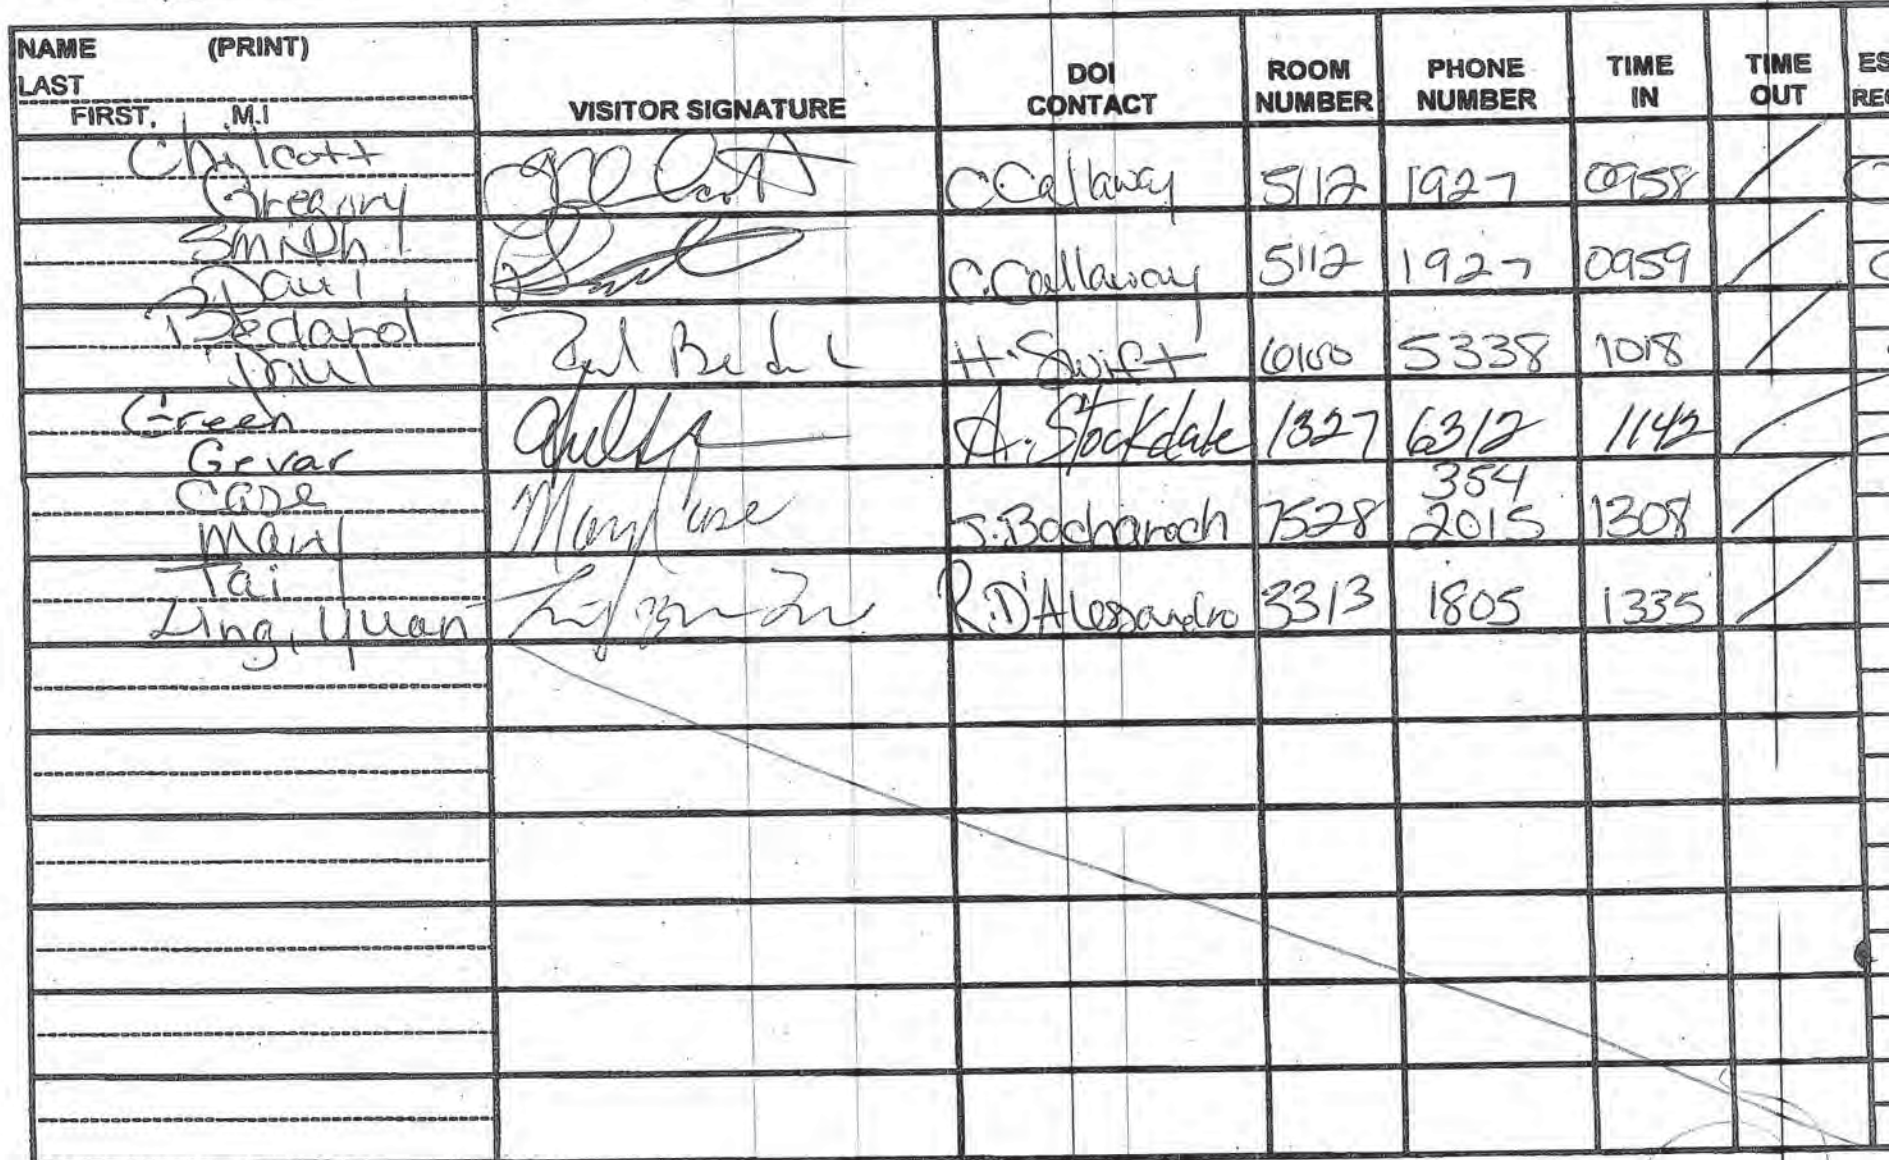 NAME (PRINT)
LAST
FIRST, M.I
VISITOR SIGNATURE
DOI CONTACT
ROOM NUMBER
PHONE NUMBER
TIME IN
TIME OUT
Chilcott
Gregory C.Callaway 5112 1927 0958
Smith
Paul C.Callaway 5112 1927 0959
Bedard
Paul Paul Bedard H.Swift 6100 5338 1018
Green
Gevar A.Stockdale 1327 6312 1142
Case 354
Mary Mary Case J.Bacharach 7528 2015 1308
Tai
Ling, Yuan R.D'Alessandro 3313 1805 1335